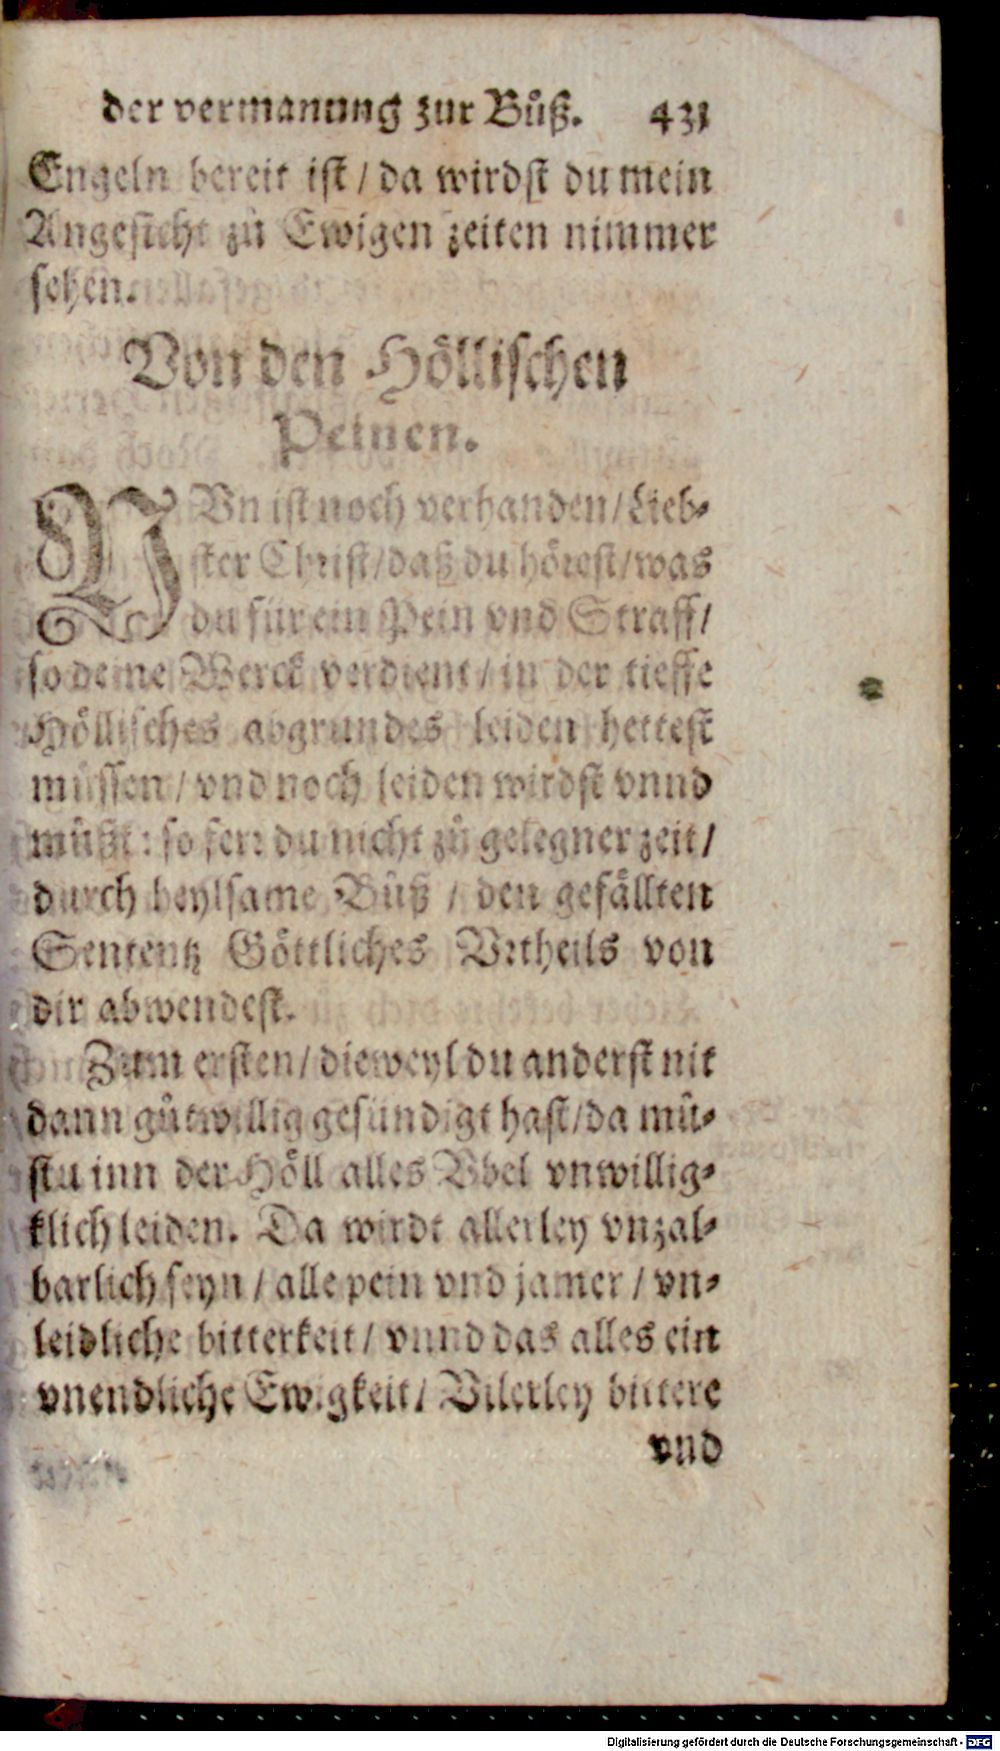 der vermanung zur Bůß. 431
Engeln bereit ist / da wirdst du mein
Angesicht zů Ewigen zeiten nimmer
sehen.
Von den Höllischen
Peinen.
NVn ist noch verhanden / Lieb-
ster Christ / daß du hörest / was
du für ein Pein vnd Straff /
so deine Werck verdient / in der tieffe
Höllisches abgrundes leiden hettest
müssen / vnd noch leiden wirdst vnnd
můßt : so fern du nicht zů gelegner zeit /
durch heylsame Bůß / den gefällten
Sententz Göttliches Vrtheils von
dir abwendest.
Zum ersten / dieweyl du anderst nit
dann gůtwillig gesündigt hast / da můst-
stu inn der Höll alles Vbel vnwillig-
klich leiden. Da wirdt allerley vnzal-
barlich seyn / alle pein vnd jamer / vn-
leidliche bitterkeit / vnnd das alles ein
vnendliche Ewigkeit / Vilerley bittere
vnd
Digitalisierung gefördert durch die Deutsche Forschungsgemeinschaft - DFG